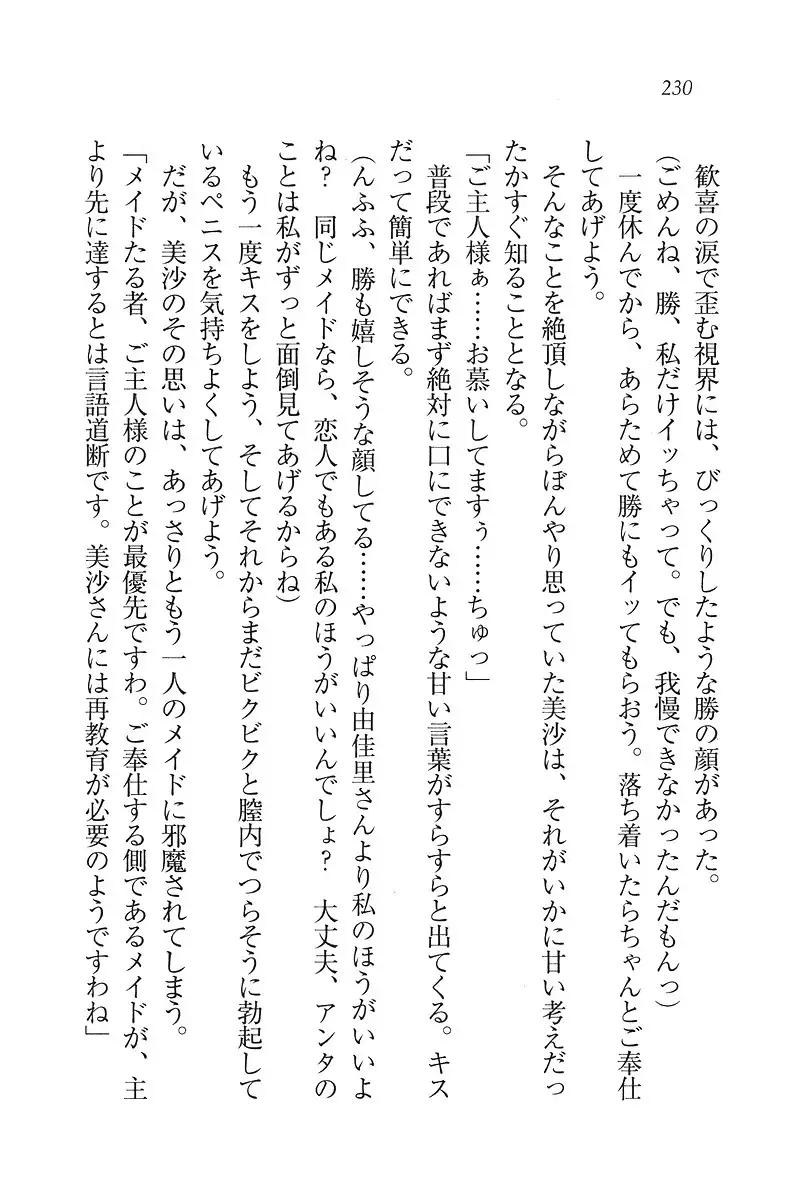 230
歓喜の涙で歪む視界には、びっくりしたような勝の顔があった。
(ごめんね、勝、私だけイッちゃって。でも、我慢できなかったんだもんっ)
一度休んでから、あらためて勝にもイッてもらおう。落ち着いたらちゃんとご奉仕
してあげよう。
そんなことを絶頂しながらぼんやり思っていた美沙は、それがいかに甘い考えだっ
たかすぐ知ることとなる。
「ご主人様ぁ……お慕いしてますぅ……ちゅっ」
普段であればまず絶対に口にできないような甘い言葉がすらすらと出てくる。キス
だって簡単にできる。
(んふふ、勝も嬉しそうな顔してる……やっぱり由佳里さんより私のほうがいいよ
ね?　同じメイドなら、恋人でもある私のほうがいいんでしょ?　大丈夫、アンタの
ことは私がずっと面倒見てあげるからね)
もう一度キスをしよう、そしてそれからまだビクビクと膣内でつらそうに勃起して
いるペニスを気持ちよくしてあげよう。
だが、美沙のその思いは、あっさりともう一人のメイドに邪魔されてしまう。
「メイドたる者、ご主人様のことが最優先ですわ。ご奉仕する側であるメイドが、主
より先に達するとは言語道断です。美沙さんには再教育が必要のようですわね」